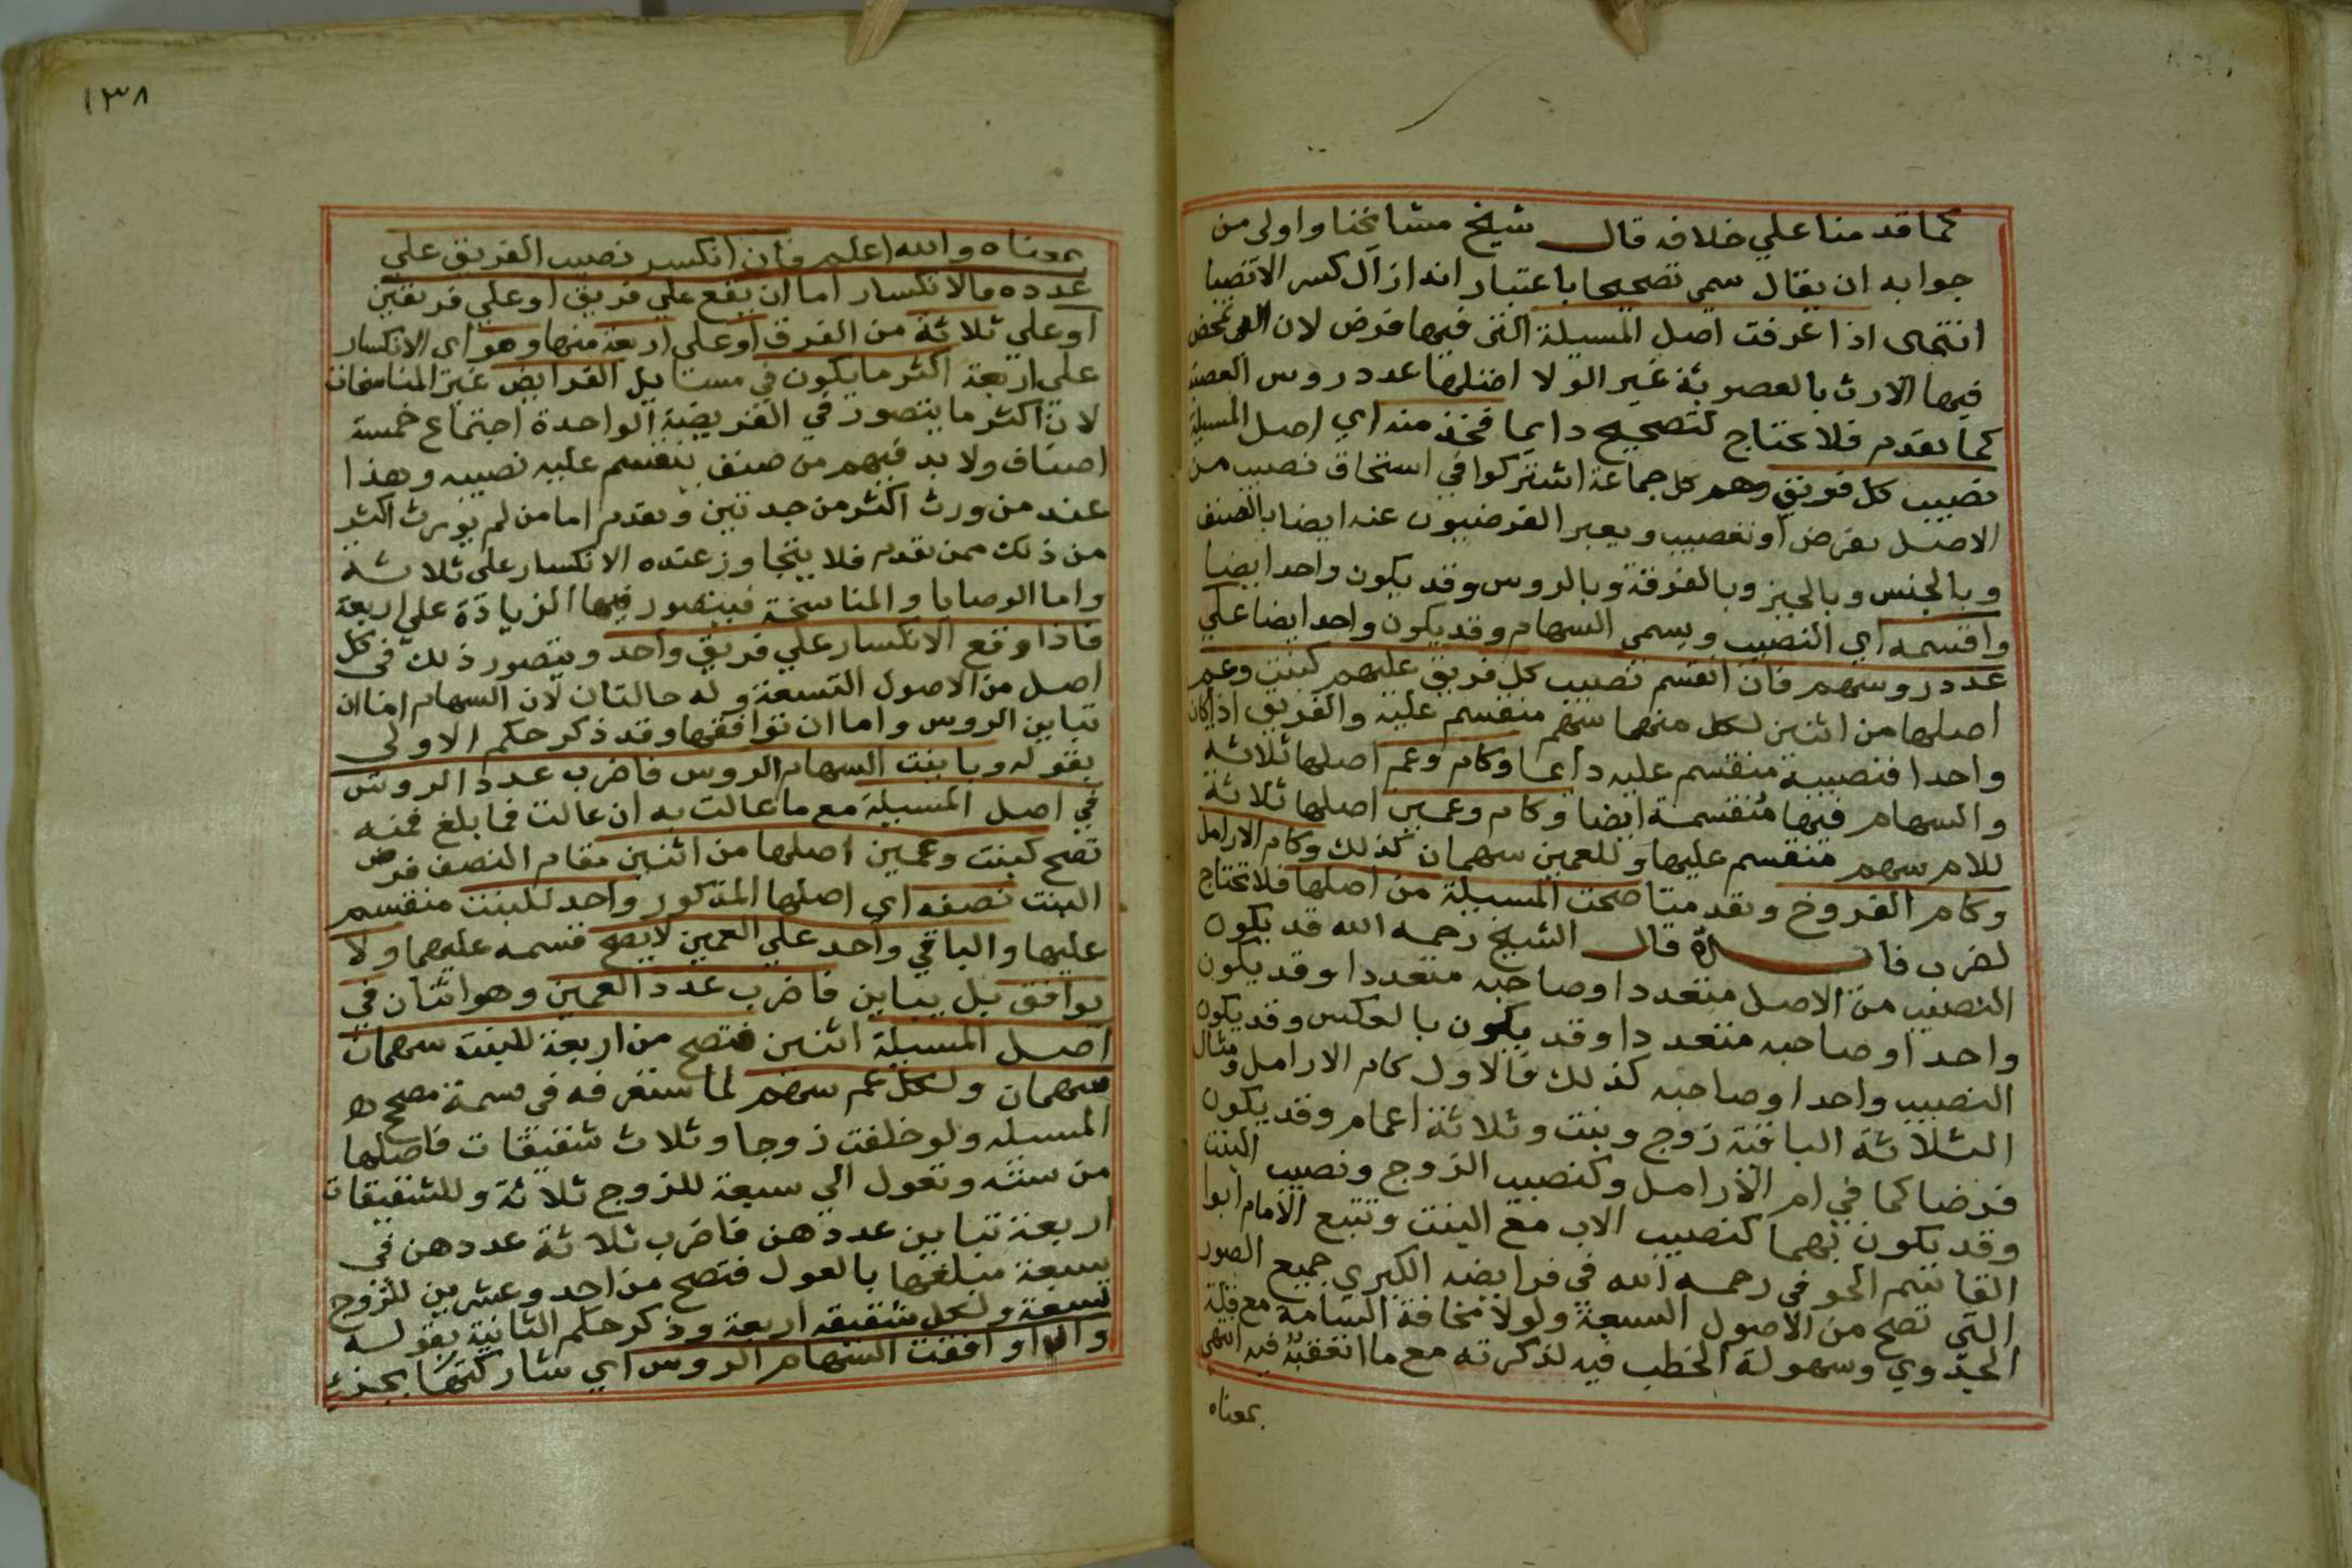 كما قدمنا علي خلافه قال شيخ مشايخنا واولى من
جوابه ان يقال سمى تصحيحا باعتبار انه ازال كسر الانصبا
انتهى اذا عرفت اصل المسيلة التى فيها فرض لان التى تمحض
فيها الارث بالعصوبة غير الولا اصلها عدد روس العصبة
كما تقدم فلا تحتاج لتصحيح دايما فخذ منه اي اصل المسيلة
نصيب كل فريق وهم كل جماعة اشتركوا في استحقاق نصيب من
الاصل بفرض او تعصيب ويعبر الفرضيون عنه ايضا بالصنف
وبالجنس وبالحيز وبالفرقة وبالروس وقد يكون واحد ايضا
واقسمه اي النصيب ويسمى السهام وقد يكون واحد ايضا علي
عدد روسهم فان انقسم نصيب كل فريق عليهم كبنت وعم
اصلها من اثنين لكل منهما سهم منقسم عليه والفريق اذا كان
واحدا فنصيبه منقسم عليه دايما وكام وعم اصلها ثلاثة
والسهام فيها منقسمة ايضا وكام وعمين اصلها ثلاثة
للام سهم منقسم عليها وللعمين سهمان كذلك وكام الارامل
وكام الفروخ وتقدمتا صحت المسيلة من اصلها فلا تحتاج
لضرب فايدة قال الشيخ رحمه الله قد يكون
النصيب من الاصل متعددا وصاحبه متعددا وقد يكون
واحدا وصاحبه متعددا وقد يكون بالعكس وقد يكون
النصيب واحدا وصاحبه كذلك فالاول كام الارامل ومثال
الثلاثة الباقية زوج وبنت وثلاثة اعمام وقد يكون
فرضا كما في ام الارامل وكنصيب الزوج ونصيب البنت
وقد يكون بهما كنصيب الاب مع البنت وتتبع الامام ابوا
القاسم الحوفى رحمه الله فى فرايضه الكبري جميع الصور
التي تصح من الاصول السبعة ولولا مخافة السامة مع قلة
الجدوي وسهولة الخطب فيه لذكرته مع ما اتفقته فيه انتهى
بمعناه
١٣٨
بمعناه والله اعلم فان انكسر نصيب الفريق علي
عدده فالانكسار اما ان يقع علي فريق او علي فريقين
او علي ثلاثة من الفرق او علي اربعة منها وهو اي الانكسار
علي اربعة اكثر ما يكون في مسايل الفرايض غير المناسخات
لان اكثر ما يتصور في الفريضة الواحدة اجتماع خمسة
اصناف ولا بد فيهم من صنف ينقسم عليه نصيبه وهذا
عند من ورث اكثر من جدتين وتقدم اما من لم يورث اكثر
من ذلك ممن تقدم فلا يتجاوز عنده الانكسار على ثلاثة
واما الوصايا والمناسخة فيتصور فيها الزيادة على اربعة
فاذا وقع الانكسار علي فريق واحد ويتصور ذلك فى كل
اصل من الاصول التسعة وله حالتان لان السهام اما ان
تباين الروس واما ان توافقها وقد ذكر حكم الاولى
بقوله وباينت السهام الروس فاضرب عدد الروس
في اصل المسيلة مع ما عالت به ان عالت فما بلغ فمنه
تصح كبنت وعمين اصلها من اثنين مقام النصف فرض
البنت نصفه اي اصلها المذكور واحد للبنت منقسم
عليها والباقي واحد علي العمين لا يصح قسمه عليهما ولا
يوافق بل يباين فاضرب عدد العمين وهو اثنان في
اصل المسيلة اثنين فتصح من اربعة للبنت سهمان
سهمان ولكل عم سهم لما ستعرفه فى قسمة مصحح
المسيله ولو خلفت زوجا وثلاث شقيقات فاصلها
من ستة وتعول الي سبعة للزوج ثلاثة وللشقيقات
اربعة تباين عددهن فاضرب ثلاثة عددهن في
سبعة مبلغها بالعول فتصح من احد وعشرين للزوج
تسعة ولكل شقيقه اربعة وذكر حكم الثانية بقوله
وان وافقت السهام الروس اي شاركتها بجزء